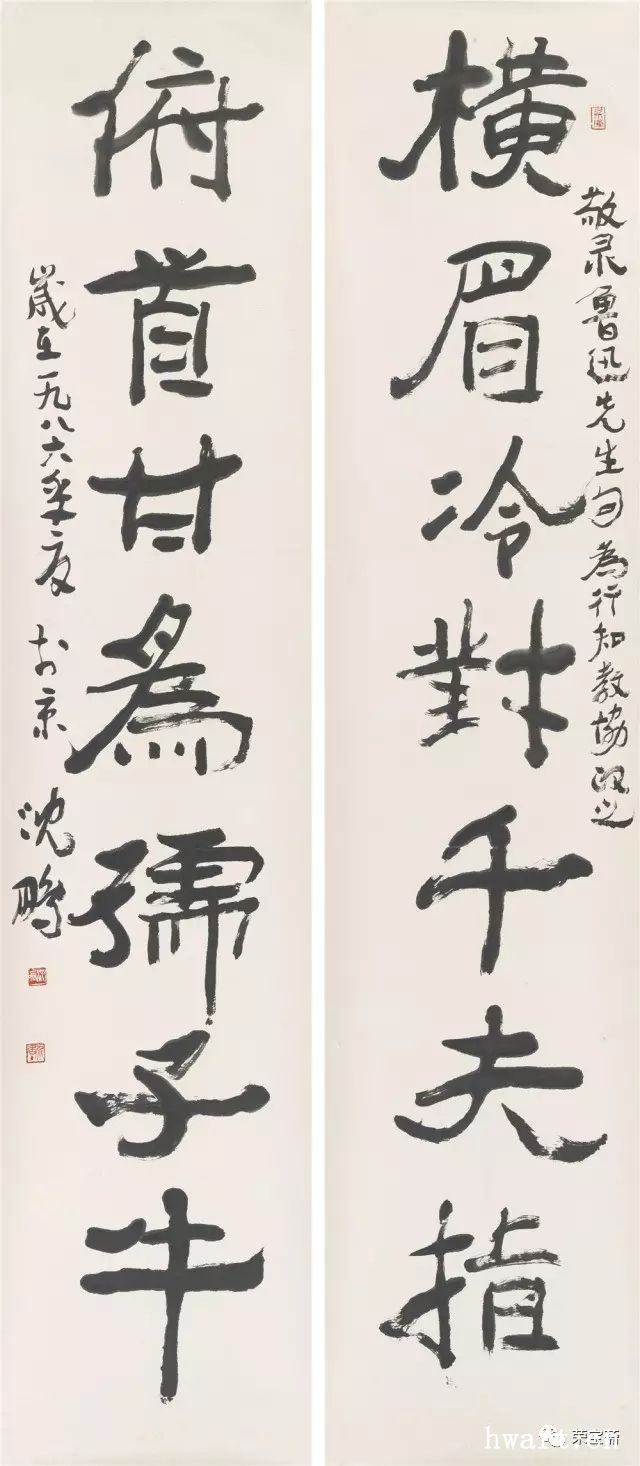 橫眉冷對千夫指
敬录魯迅先生句為行知教協政之
俯首甘為孺子牛
歲在一九八六年夏於京
沈鵬
荣宝斋